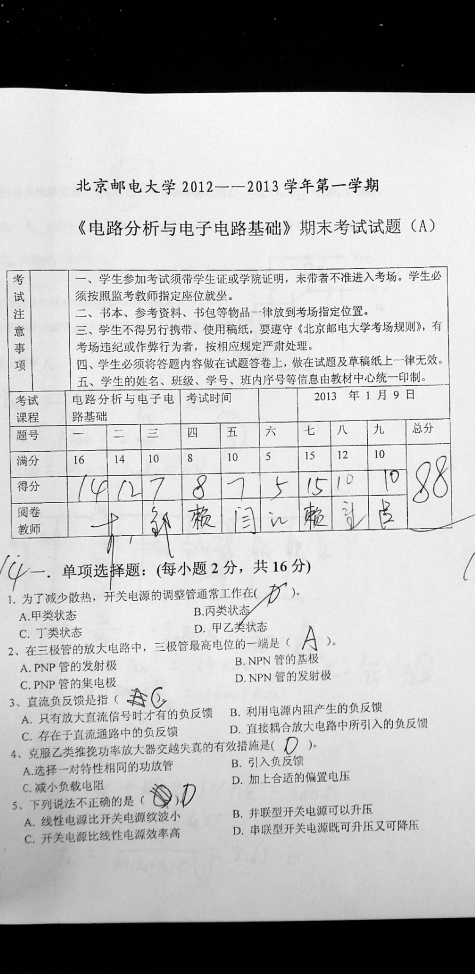 北京邮电大学2012——2013学年第一学期
《电路分析与电子电路基础》期末考试试题（A）
考试注意事项
一、学生参加考试须带学生证或学院证明，未带者不准进入考场。学生必
须按照监考教师指定座位就坐。
二、书本、参考资料、书包等物品一律放到考场指定位置。
三、学生不得另行携带、使用稿纸，要遵守《北京邮电大学考场规则》，有
考场违纪或作弊行为者，按相应规定严肃处理。
四、学生必须将答题内容做在试题答卷上，做在试题及草稿纸上一律无效。
五、学生的姓名、班级、学号、班内序号等信息由教材中心统一印制。
考试课程 电路分析与电子电路基础 考试时间 2013 年 1 月 9 日
题号 一 二 三 四 五 六 七 八 九 总分
满分 16 14 10 8 10 5 15 12 10
得分 14 12 7 8 7 5 15 10 10 88
阅卷教师 赖 闫 赖
14 一．单项选择题：(每小题 2 分，共 16 分)
1. 为了减少散热，开关电源的调整管通常工作在( D )。
A.甲类状态 B.丙类状态
C. 丁类状态 D. 甲乙类状态
2、在三极管的放大电路中，三极管最高电位的一端是（ A ）。
A. PNP 管的发射极 B. NPN 管的基极
C. PNP 管的集电极 D. NPN 管的发射极
3、直流负反馈是指（ C ）
A. 只有放大直流信号时才有的负反馈 B. 利用电源内阻产生的负反馈
C. 存在于直流通路中的负反馈 D. 直接耦合放大电路中所引入的负反馈
4、克服乙类推挽功率放大器交越失真的有效措施是( D )。
A.选择一对特性相同的功放管 B. 引入负反馈
C. 减小负载电阻 D. 加上合适的偏置电压
5、下列说法不正确的是（ ）D
A. 线性电源比开关电源纹波小 B. 并联型开关电源可以升压
C. 开关电源比线性电源效率高 D. 串联型开关电源既可升压又可降压